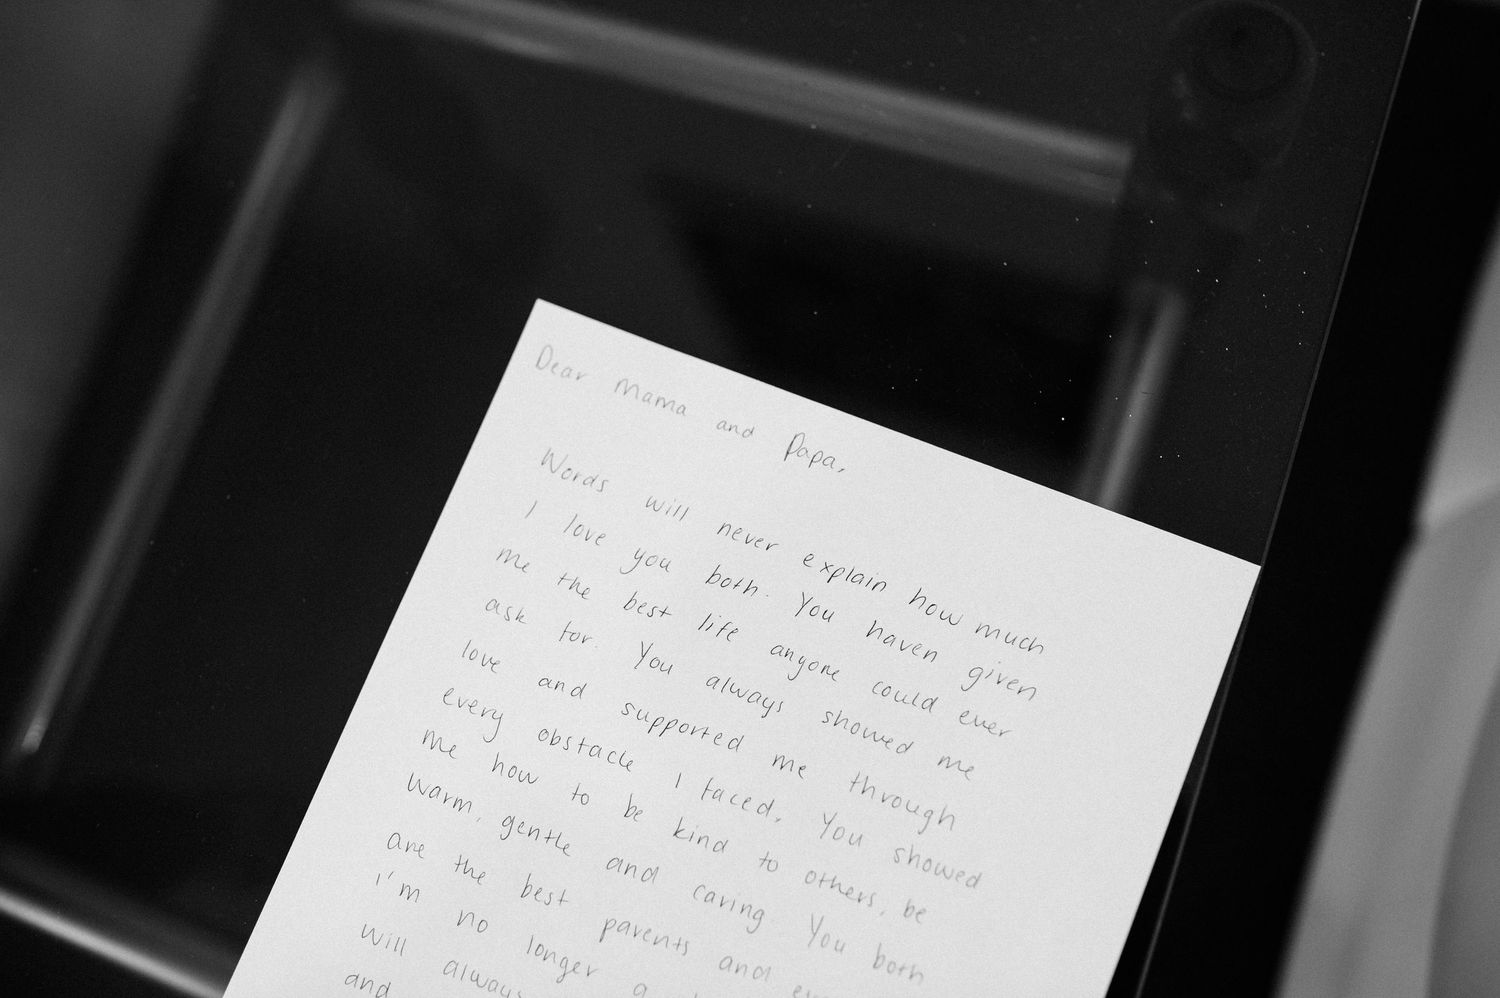 Dear Mama and Papa,
Words will never explain how much
I love you both. You haven given
me the best life anyone could ever
ask for. You always showed me
love and supported me through
every obstacle I faced. You showed
me how to be kind to others, be
warm, gentle and caring. You both
are the best parents and
I'm no longer a
will always
and